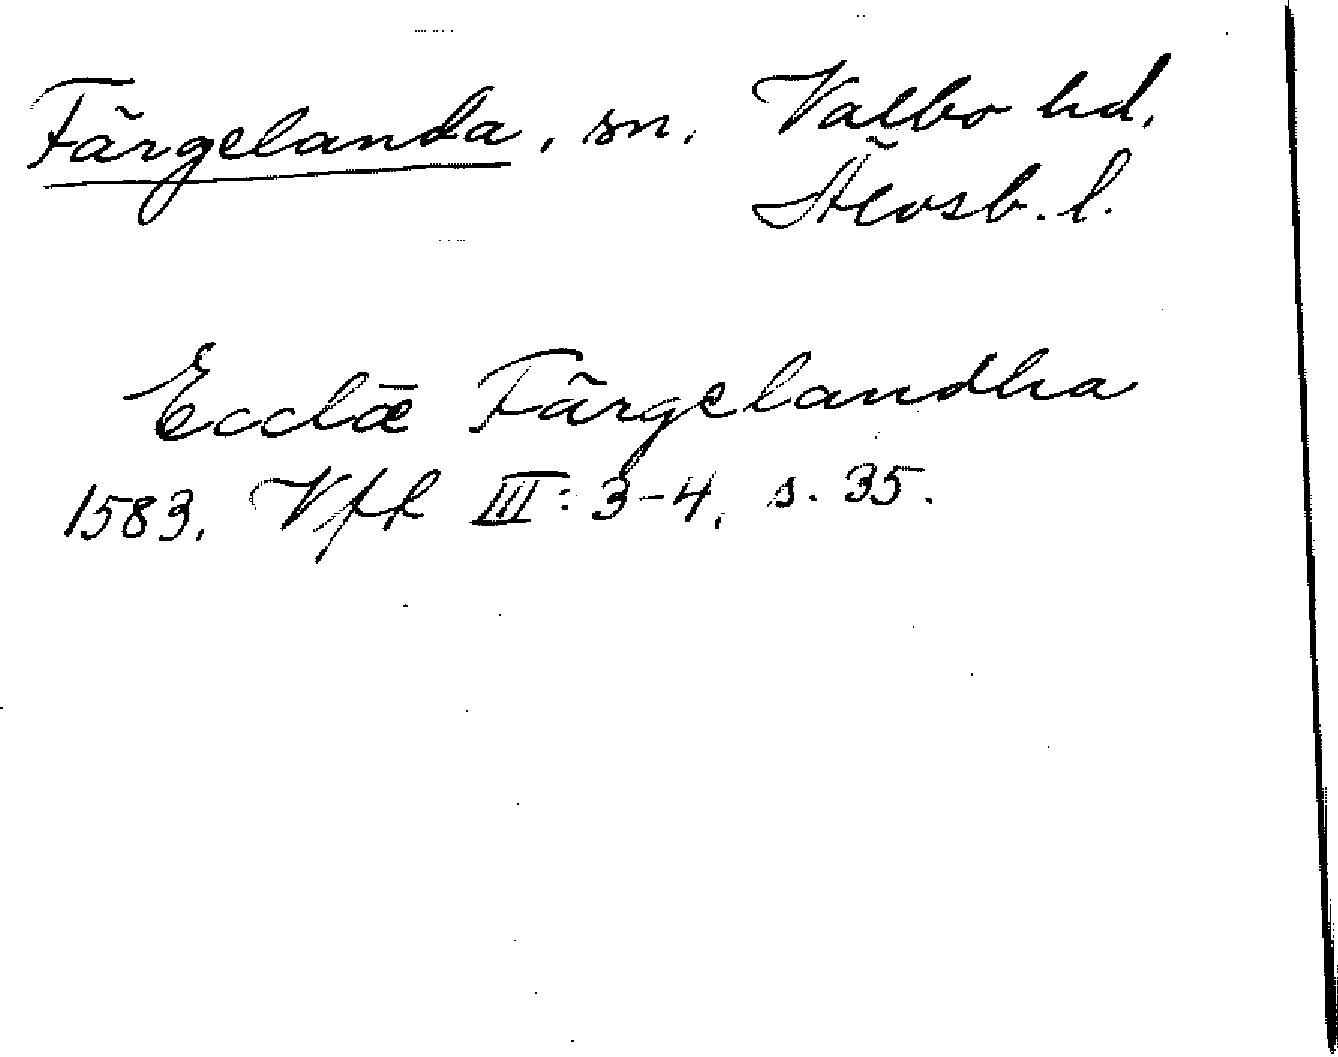 Färgelanda, sn. Valbo hd.
Älvsb. l.
Ecclǣ Färgelandha
1583. Vfk III: 3-4, s. 35.